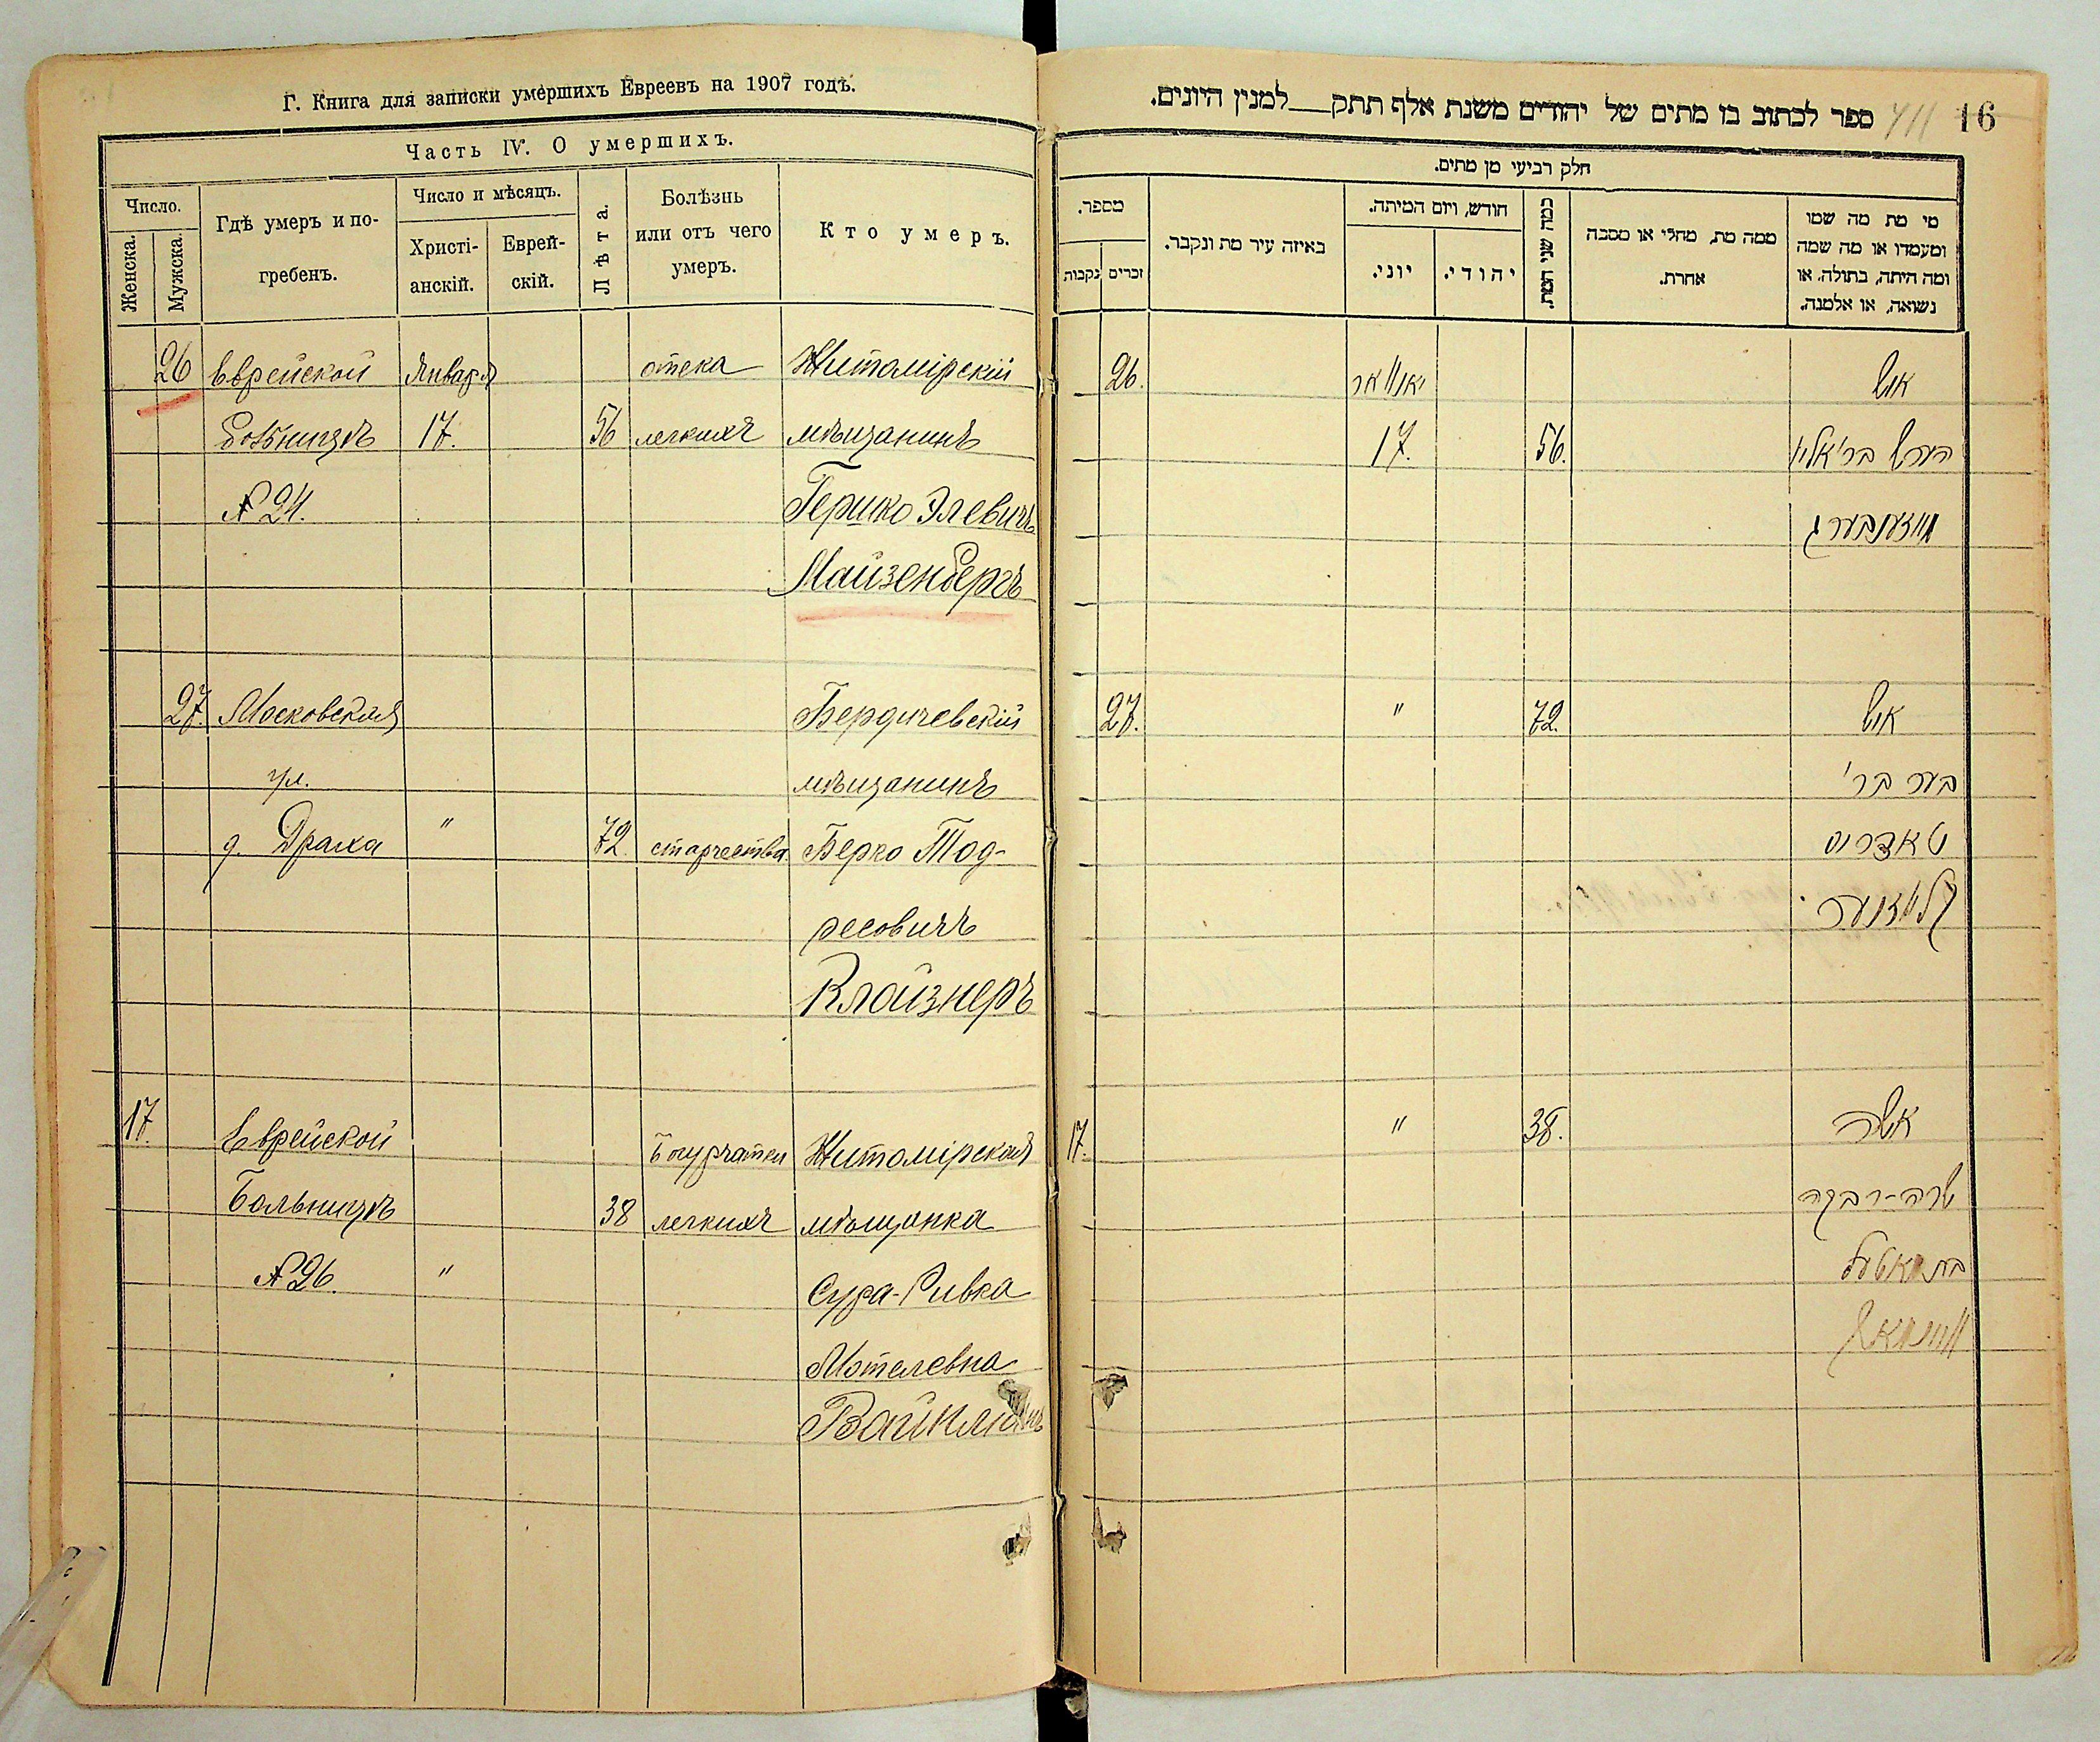 Г. Книга для записки умершихъ Евреевъ на 1907 годъ.
Часть IV. О умершихъ.
Число.
Женска.
Мужска.
Гдѣ умеръ и по-
гребенъ.
Число и мѣсяцъ.
Христі-
анскій.
Еврей-
скій.
Лѣта.
Болѣзнь
или отъ чего
умеръ.
Кто умеръ.
26 Еврейской Января отека Житомірскій
Больницѣ 17. 56 легкихъ мѣщанинъ
№ 24. Гершко Элевичъ
Майзенбергъ
27. Московская Бердичевскій
ул. мѣщанинъ
д. Драха " 72. старчества Берко Тод-
ресовичъ
Клайзнеръ
17. Еврейской Бугурчатки Житомірская
Больницѣ 38 легкихъ мѣщанка
№ 26. " Сура-Ривка
Мотелевна
Вайнманъ
ספר לכתוב בו מתים של יהודים משנת אלף תתק__למנין היונים.
711 16
חלק רביעי מן מתים.
מספר.
נקבות
זכרים
באיזה עיר מת ונקבר.
חודש, ויום המיתה.
יוני.
יהודי.
כמה שני המת.
ממה מת, מחלי או מסבה
אחרת.
מי מת מה שמו
ומעמדו או מה שמה
ומה היתה, בתולה, או
נשואה, או אלמנה.
26. יאנואר איש
17. 56. הערש בר' אליו
מייזענבערג
27. " 72. איש
בער בר'
טאדרוס
קלייזנער
17. " 38. אשה
שרה-רבקה
בת מאטעל